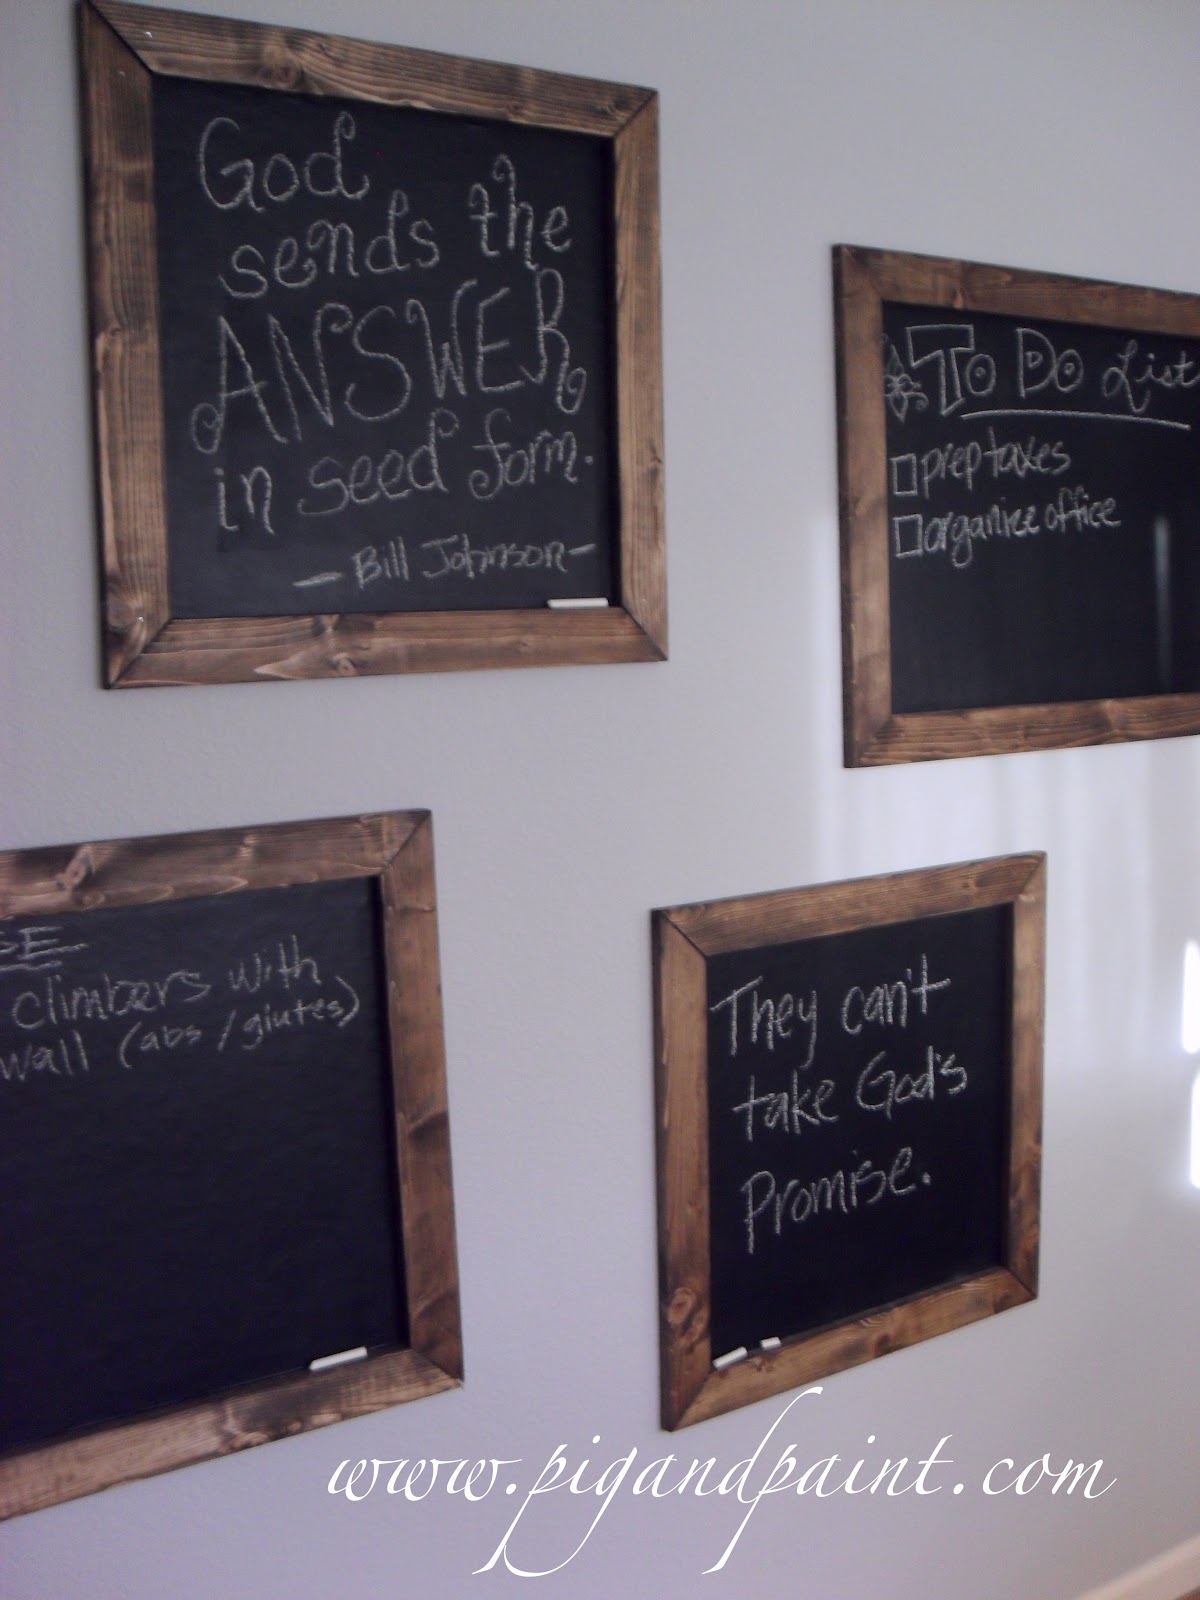 God
sends the
ANSWER
in seed form.
- Bill Johnson -
To Do List
prep taxes
organize office
climbers with
wall (abs/glutes)
They can't
take God's
Promise.
www.pigandpaint.com